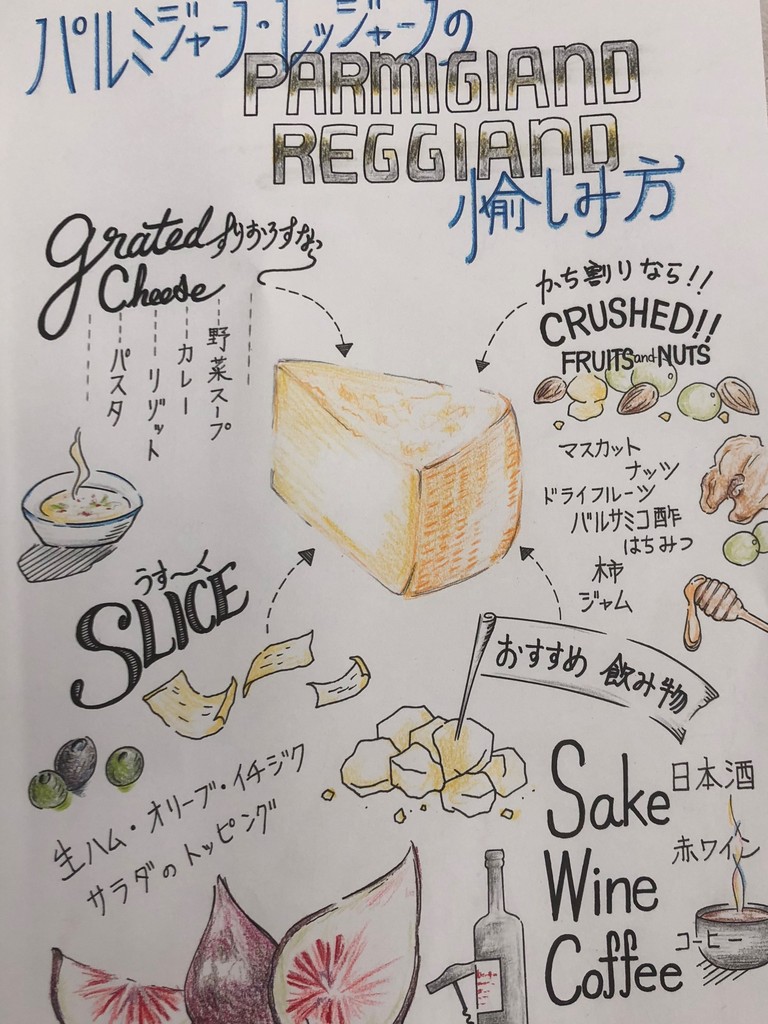 パルミジャーノ・レッジャーノの
PARMIGIANO
REGGIANO
愉しみ方
grated すりおろすなら
Cheese
野菜スープ
カレー
リゾット
パスタ
かち割りなら!!
CRUSHED!!
FRUITS and NUTS
マスカット
ナッツ
ドライフルーツ
バルサミコ酢
はちみつ
柿
ジャム
うす〜く
SLICE
生ハム・オリーブ・イチジク
サラダのトッピング
おすすめ 飲み物
Sake 日本酒
Wine 赤ワイン
Coffee コーヒー